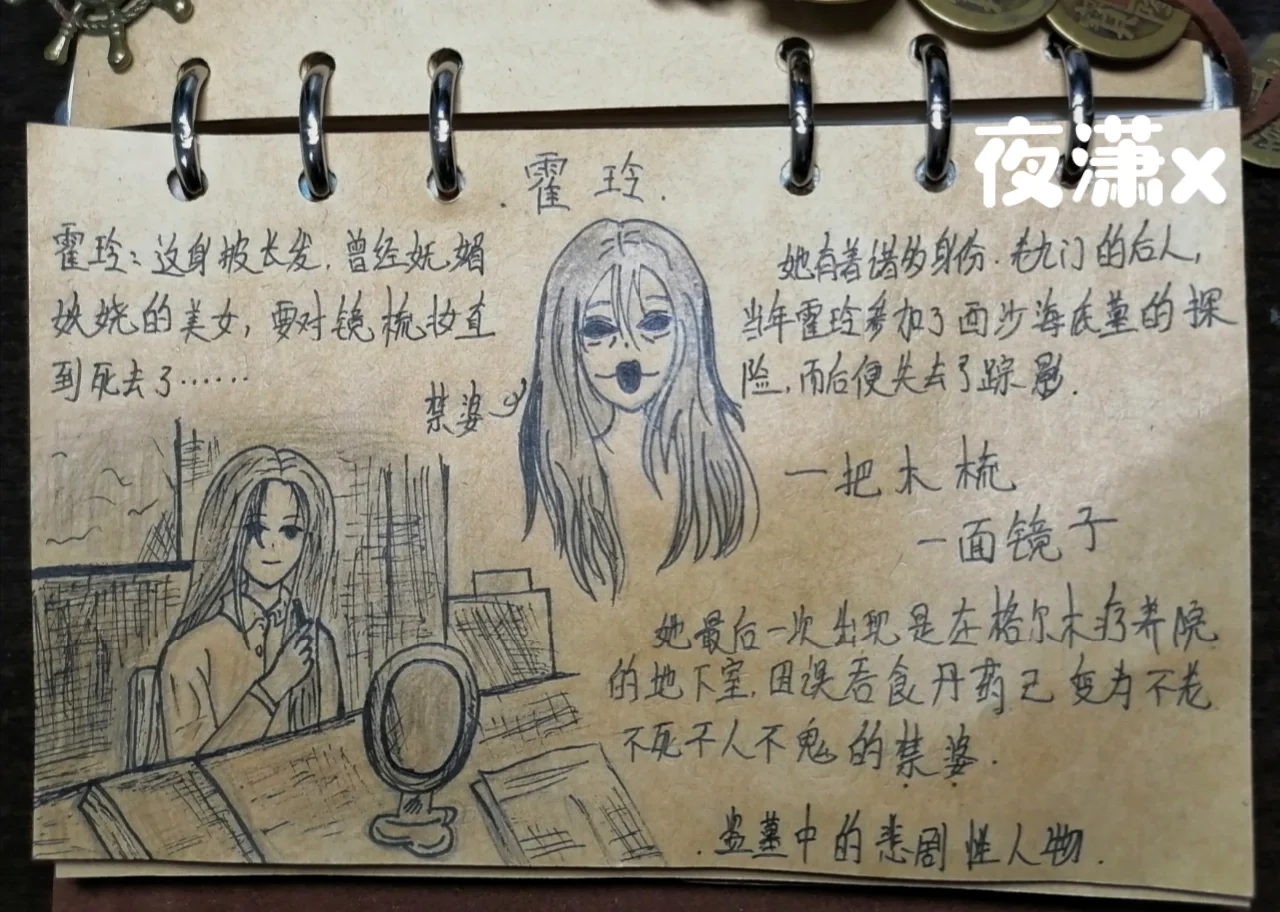 夜潇x
霍玲.
霍玲：这身披长发，曾经妩媚
妖娆的美女，要对镜梳妆直
到死去了……
禁婆
她有着诸多身份.老九门的后人，
当年霍玲参加了西沙海底墓的探
险，而后便失去了踪影.
一把木梳
一面镜子
她最后一次出现是在格尔木疗养院
的地下室，因误吞食丹药已变为不老
不死不人不鬼的禁婆.
.盗墓中的悲剧性人物.